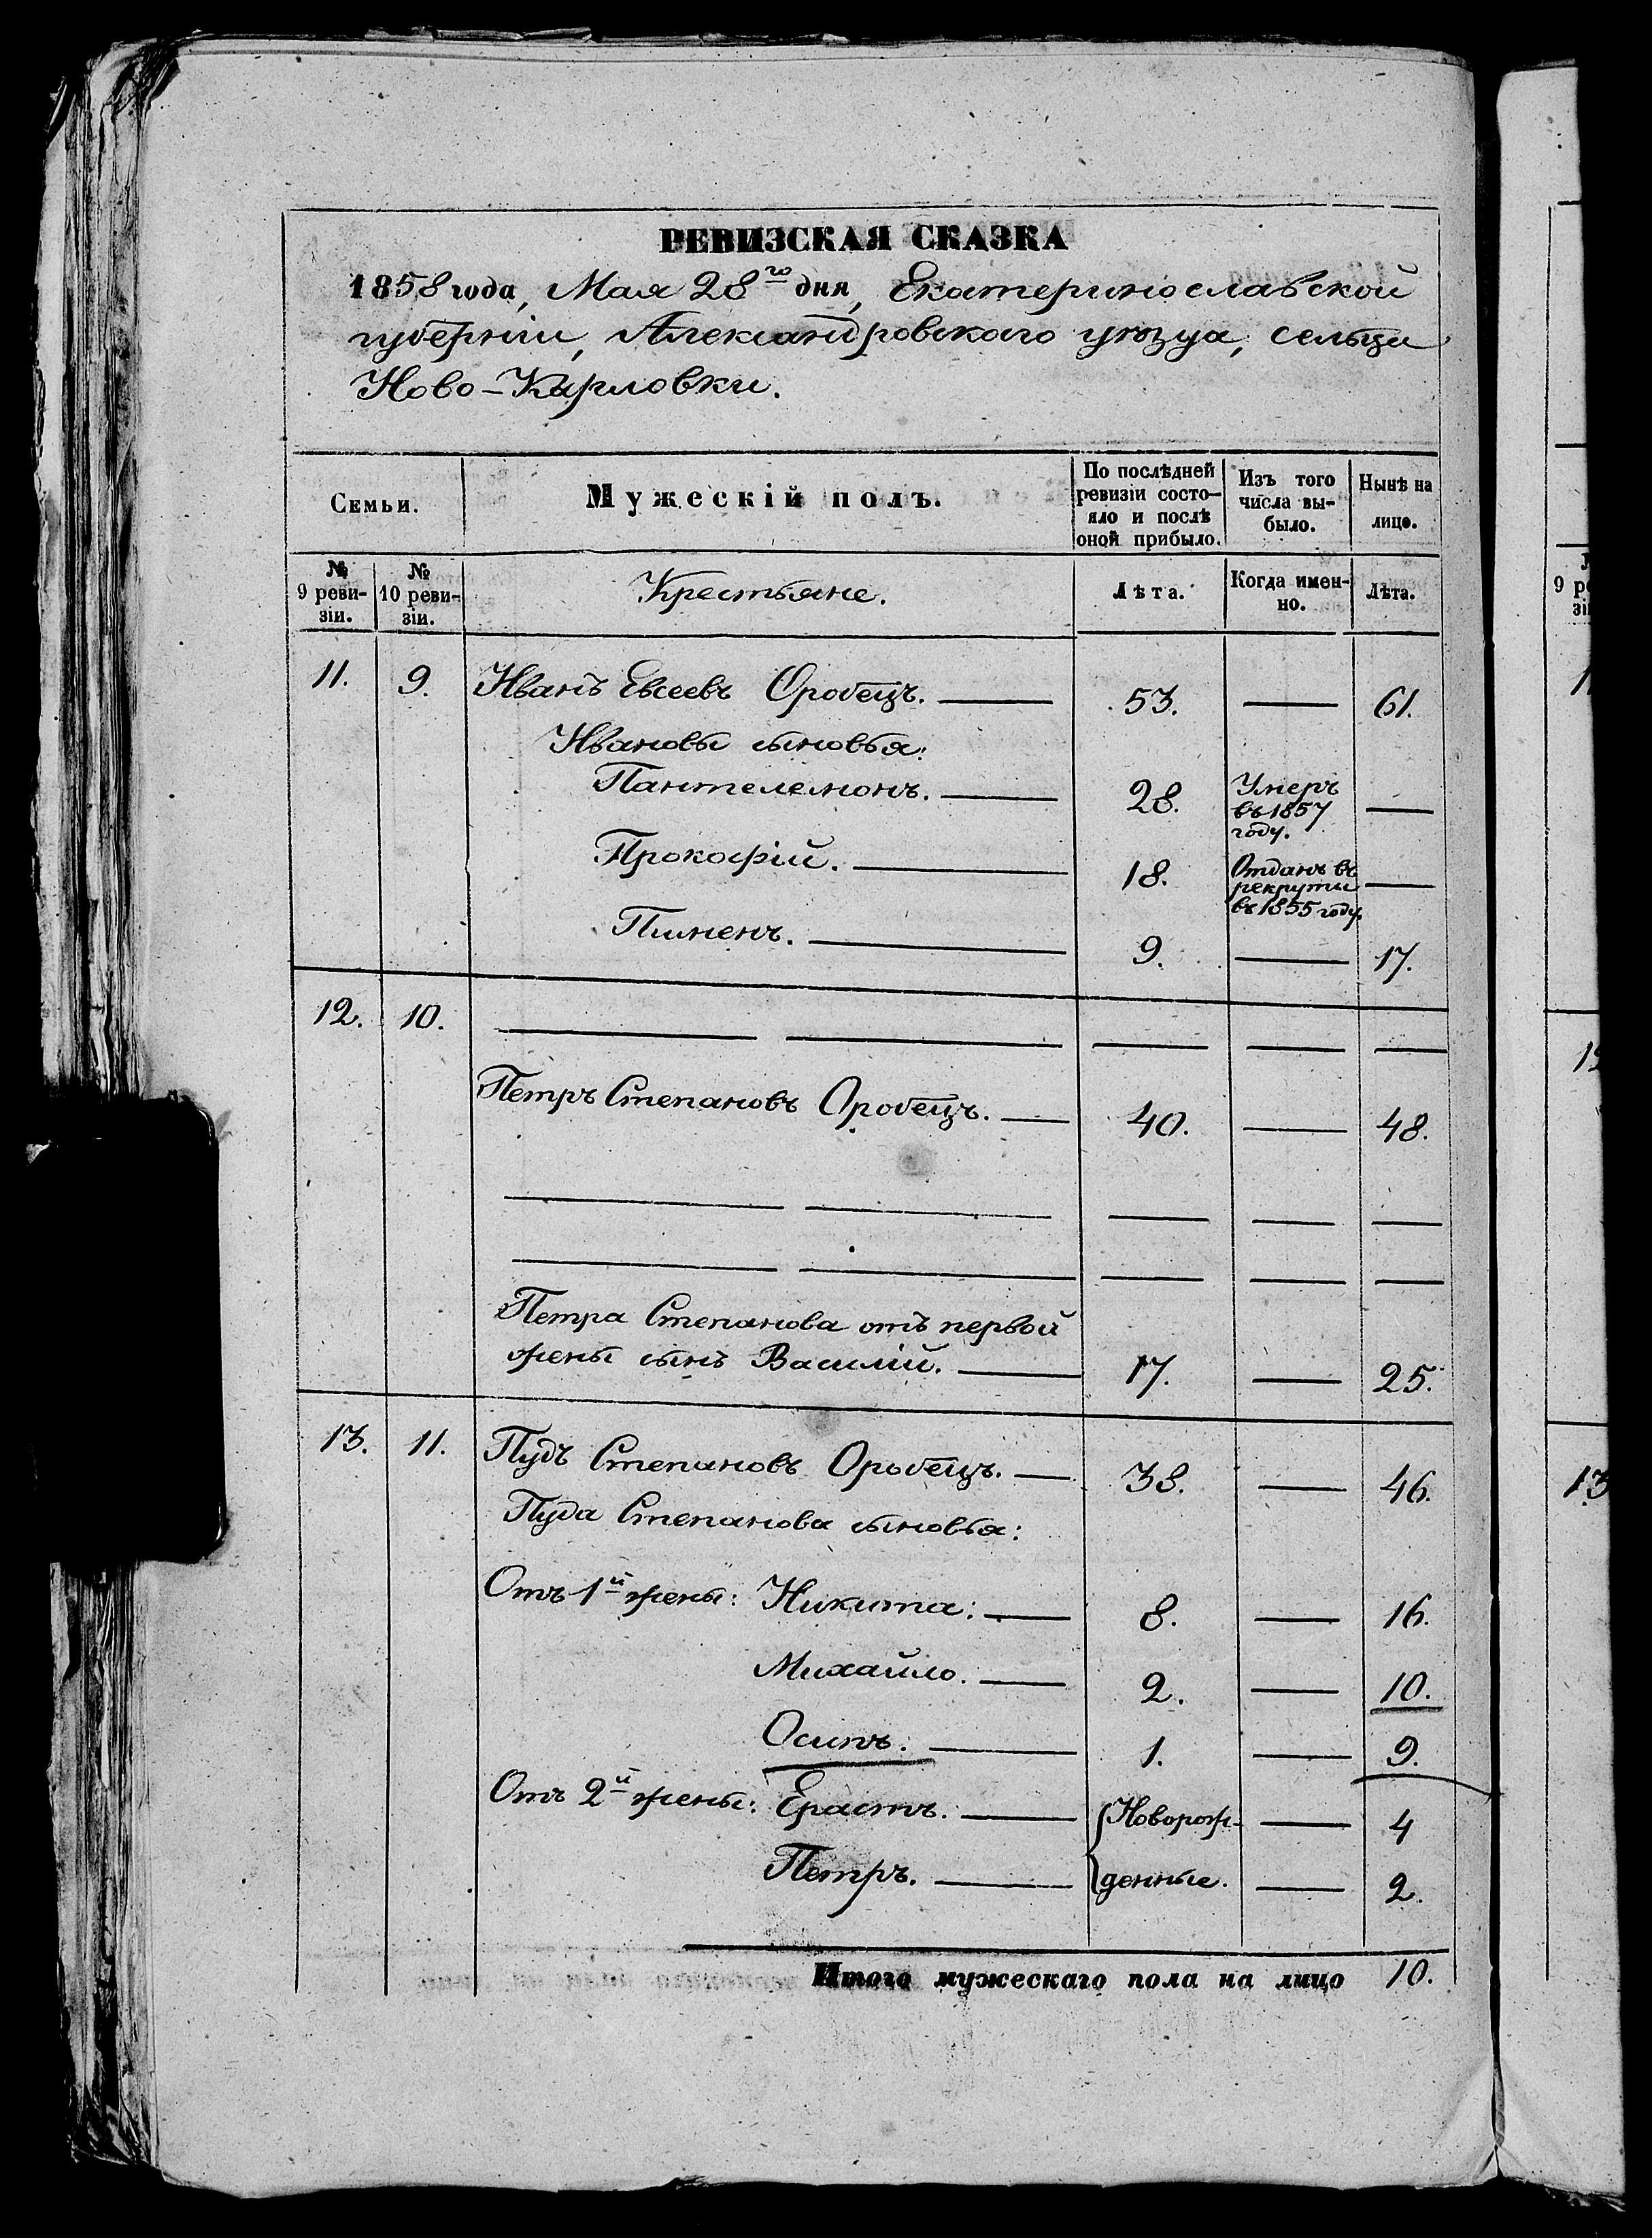 РЕВИЗСКАЯ СКАЗКА
1858 года, Мая 28го дня, Екатеринославской
губерніи, Александровскаго уѣзда, сельца
Ново-Карловки.
Семьи.
Мужескій полъ.
По послѣдней
ревизіи состо-
яло и послѣ
оной прибыло.
Изъ того
числа вы-
было.
Нынѣ на
лицо.
№
9 реви-
зіи.
№
10 реви-
зіи.
Крестьяне.
Лѣта.
Когда имен-
но.
Лѣта.
11. 9. Иванъ Евсеевъ Оробецъ. — 53. — 61.
Ивановы сыновья:
Пантелемонъ. — 28. Умеръ
въ 1857
году. —
Прокофій. — 18. Отданъ въ
рекруты
въ 1855 году. —
Пименъ. — 9. — 17.
12. 10. — — — — —
Петръ Степановъ Оробецъ. — 40. — 48.
— — — — —
— — — — —
Петра Степанова отъ первой
жены сынъ Василій. — 17. — 25.
13. 11. Пудъ Степановъ Оробецъ. — 38. — 46.
Пуда Степанова сыновья:
Отъ 1й жены: Никита: — 8. — 16.
Михайло. — 2. — 10.
Осипъ. — 1. — 9.
Отъ 2й жены: Ерастъ. —Новорож- — 4
Петръ. — денные. — 2.
Итого мужескаго пола на лицо 10.
9 ре
зі
13